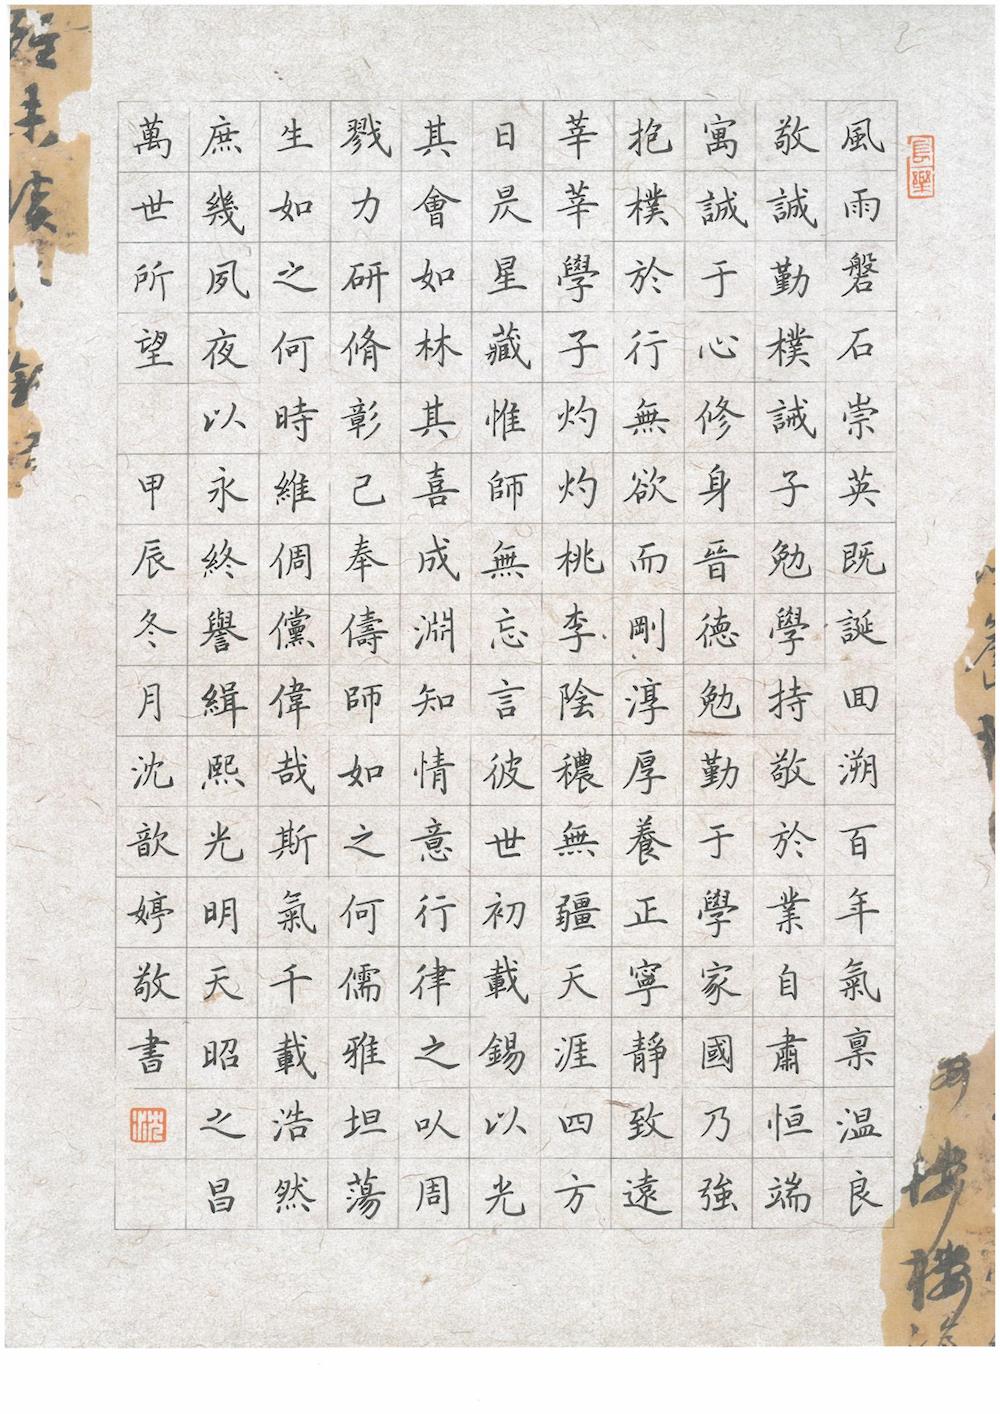 風雨磐石崇英既誕回溯百年氣稟温良
敬誠勤樸誠子勉學持敬於業自肅恒端
寓誠于心修身晉德勉勤于學家國乃強
抱樸於行無欲而剛淳厚養正寧靜致遠
莘莘學子灼灼桃李陰穠無疆天涯四方
日昃星藏惟師無忘言彼世初載錫以光
其會如林其喜成淵知情意行律之以周
戮力研脩彰己奉儔師如之何儒雅坦蕩
生如之何時維倜儻偉哉斯氣千載浩然
庶幾夙夜以永終譽緝熙光明天昭之昌
萬世所望
甲辰冬月沈歆婷敬書
長樂
沈